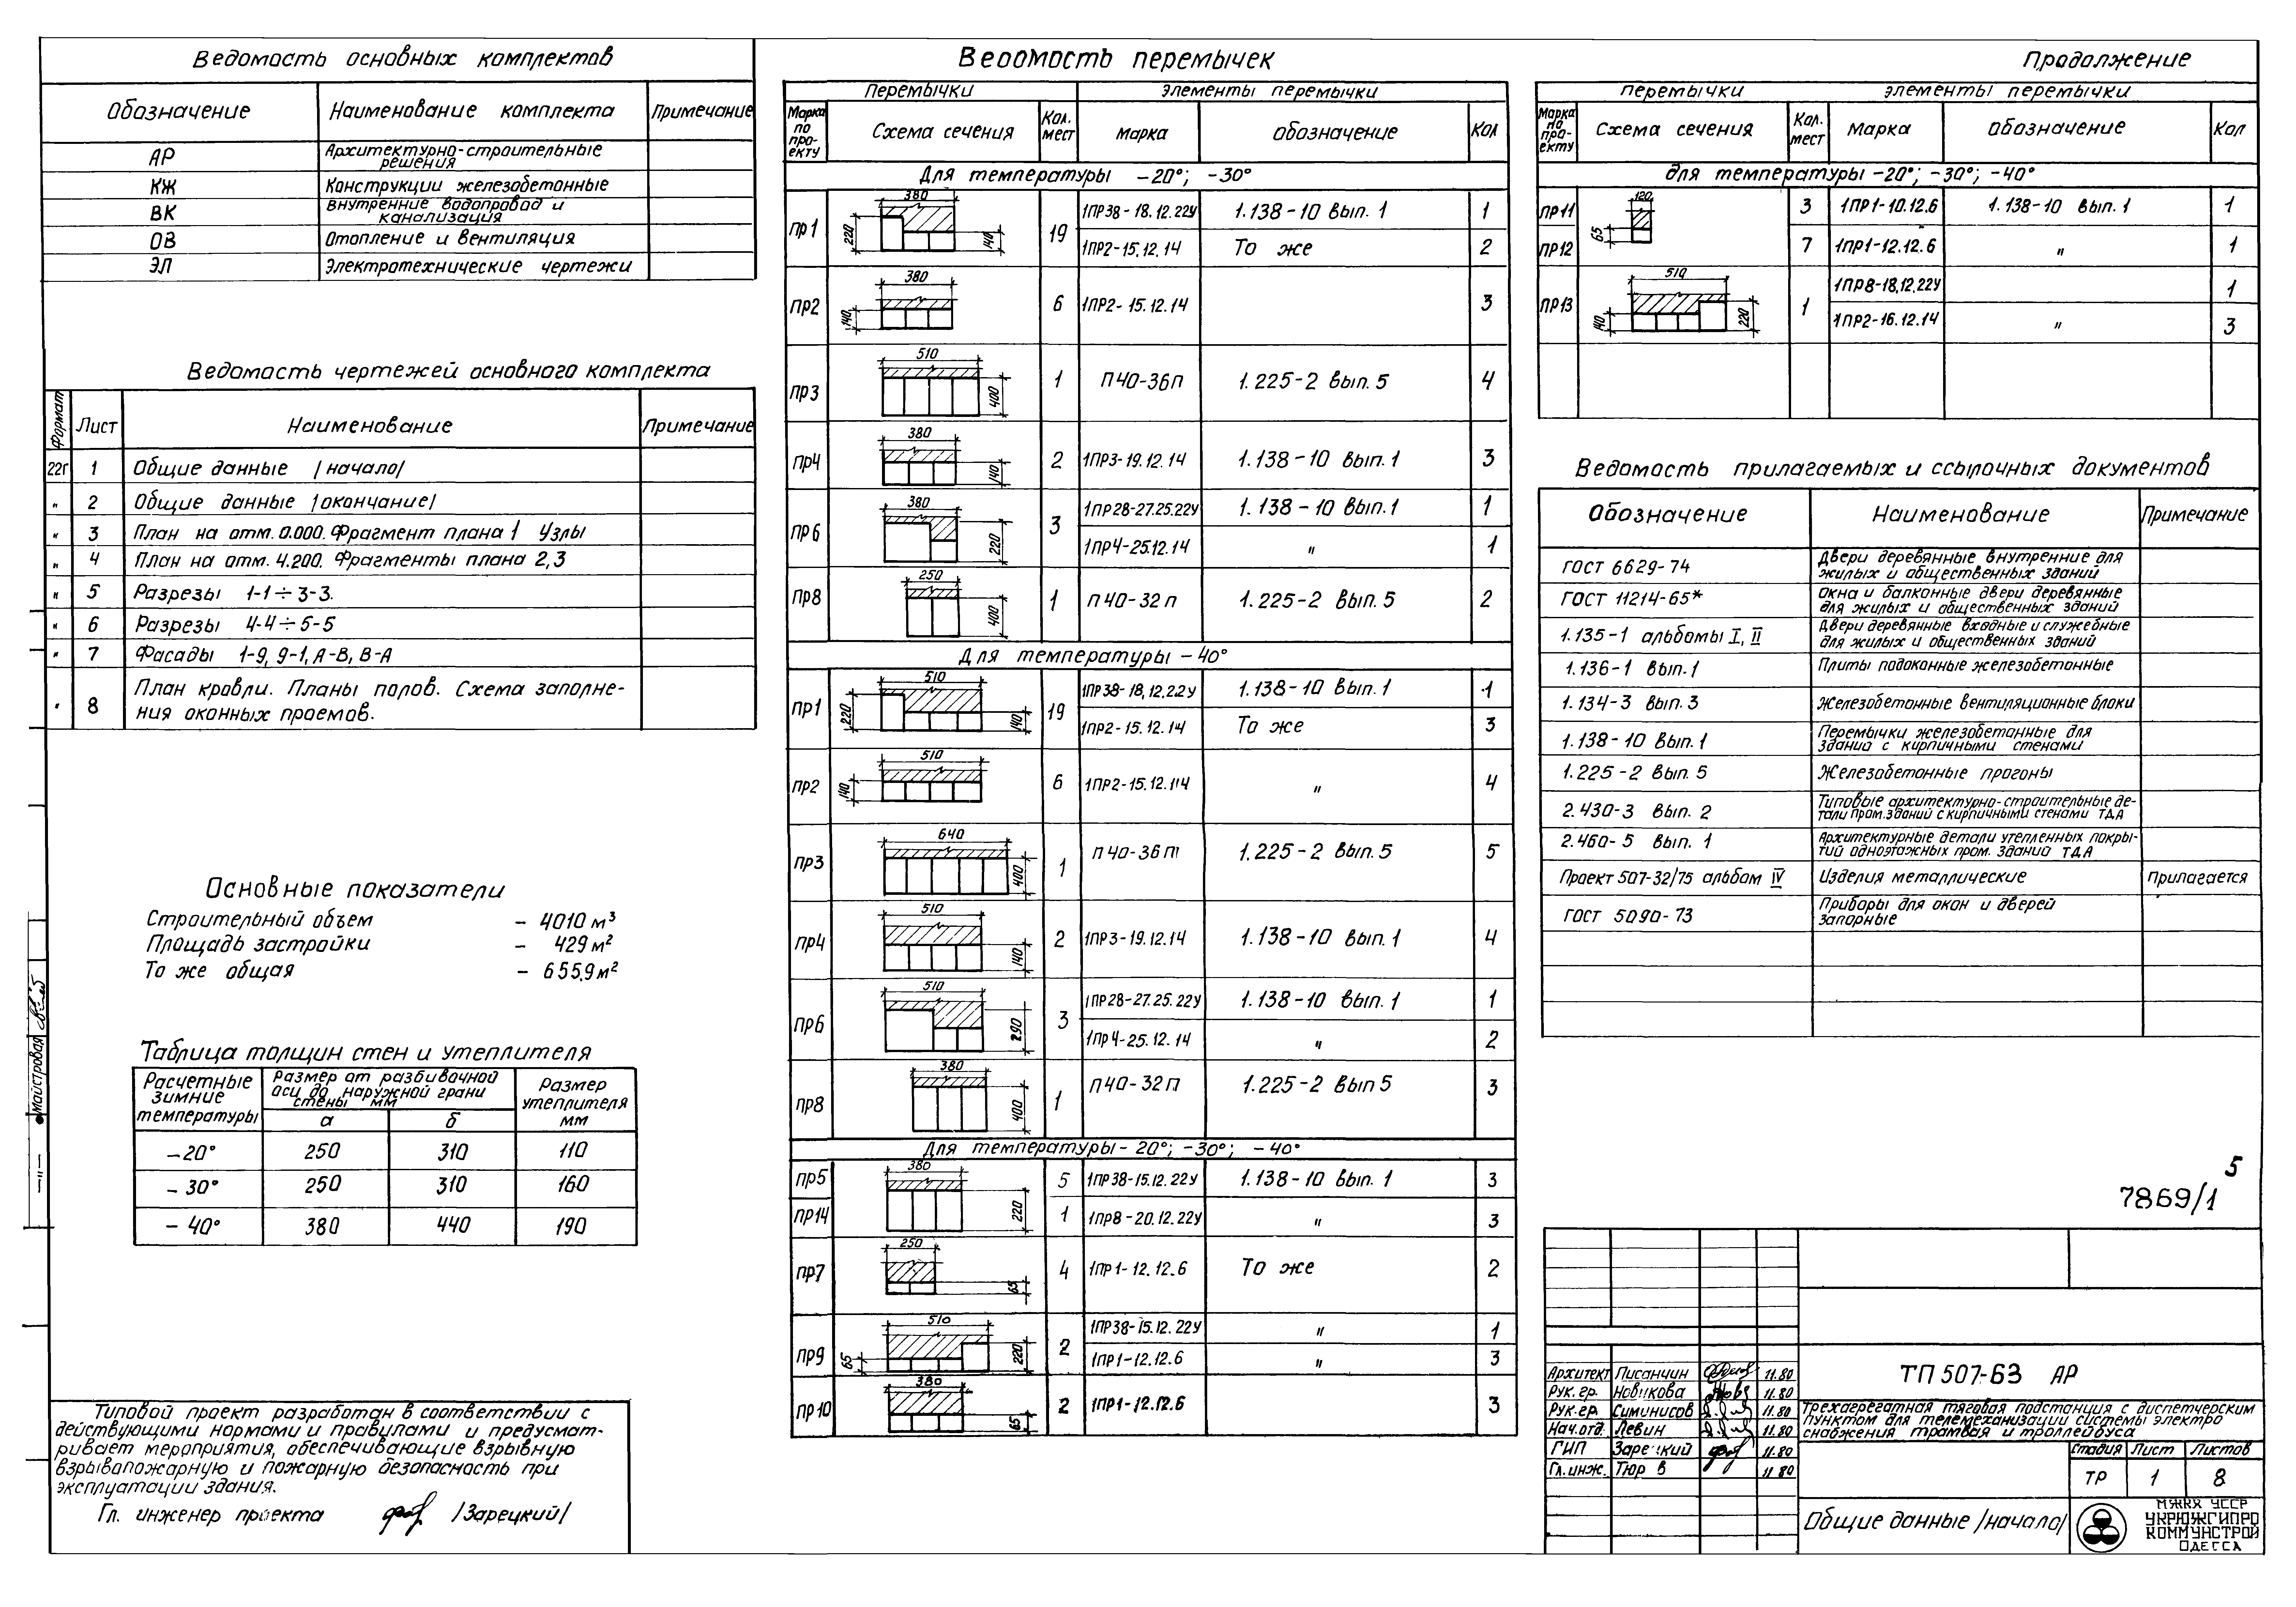 Ведомость основных комплектов
Обозначение Наименование комплекта Примечание
АР Архитектурно-строительные решения
КЖ Конструкции железобетонные
ВК Внутренние водопровод и канализация
ОВ Отопление и вентиляция
ЭЛ Электротехнические чертежи
Ведомость чертежей основного комплекта
Формат Лист Наименование Примечание
22г 1 Общие данные /начало/
" 2 Общие данные /окончание/
" 3 План на отм. 0.000. Фрагмент плана 1 Узлы
" 4 План на отм. 4.200. Фрагменты плана 2,3
" 5 Разрезы 1-1÷3-3.
" 6 Разрезы 4-4÷5-5
" 7 Фасады 1-9, 9-1, А-В, В-А
" 8 План кровли. Планы полов. Схема заполне-
ния оконных проемов.
Основные показатели
Строительный объем – 4010 м³
Площадь застройки – 429 м²
То же общая – 655,9 м²
Таблица толщин стен и утеплителя
Расчетные зимние температуры Размер от разбивочной оси до наружной грани стены мм Размер утеплителя мм
а б
–20° 250 310 110
–30° 250 310 160
–40° 380 440 190
Типовой проект разработан в соответствии с
действующими нормами и правилами и предусмат-
ривает мероприятия, обеспечивающие взрывную
взрывопожарную и пожарную безопасность при
эксплуатации здания.
Гл. инженер проекта /Зарецкий/
Майстровая
Ведомость перемычек
Перемычки Элементы перемычки
Марка по про-екту Схема сечения Кол. мест Марка Обозначение Кол
Для температуры –20°; –30°
пр1 380 220 140 19 1ПР38-18.12.22У 1.138-10 вып. 1 1
1ПР2-15.12.14 То же 2
пр2 380 140 6 1ПР2-15.12.14 3
пр3 510 400 1 П40-36п 1.225-2 вып. 5 4
пр4 380 140 2 1ПР3-19.12.14 1.138-10 вып. 1 3
пр6 380 220 3 1ПР28-27.25.22У 1.138-10 вып. 1 1
1ПР4-25.12.14 " 1
пр8 250 400 1 П40-32п 1.225-2 вып. 5 2
Для температуры –40°
пр1 510 220 140 19 1ПР38-18.12.22У 1.138-10 вып. 1 1
1ПР2-15.12.14 То же 3
пр2 510 140 6 1ПР2-15.12.14 " 4
пр3 640 400 1 П40-36п 1.225-2 вып. 5 5
пр4 510 140 2 1ПР3-19.12.14 1.138-10 вып. 1 4
пр6 510 290 3 1ПР28-27.25.22У 1.138-10 вып. 1 1
1ПР4-25.12.14 " 2
пр8 380 400 1 П40-32п 1.225-2 вып 5 3
Для температуры –20°; –30°; –40°
пр5 380 220 5 1ПР38-15.12.22У 1.138-10 вып. 1 3
пр14 1 1ПР8-20.12.22У " 3
пр7 250 65 4 1ПР1-12.12.6 То же 2
пр9 510 65 220 2 1ПР38-15.12.22У " 1
1ПР1-12.12.6 " 3
пр10 380 65 2 1ПР1-12.12.6 3
Продолжение
Перемычки Элементы перемычки
Марка по про-екту Схема сечения Кол. мест Марка Обозначение Кол
Для температуры –20°; –30°; –40°
пр11 120 65 3 1ПР1-10.12.6 1.138-10 вып. 1 1
пр12 7 1ПР1-12.12.6 " 1
пр13 510 140 220 1 1ПР8-18.12.22У 1
1ПР2-16.12.14 " 3
Ведомость прилагаемых и ссылочных документов
Обозначение Наименование Примечание
ГОСТ 6629-74 Двери деревянные внутренние для жилых и общественных зданий
ГОСТ 11214-65* Окна и балконные двери деревянные для жилых и общественных зданий
1.135-1 альбомы I, II Двери деревянные входные и служебные для жилых и общественных зданий
1.136-1 вып. 1 Плиты подоконные железобетонные
1.134-3 вып. 3 Железобетонные вентиляционные блоки
1.138-10 вып. 1 Перемычки железобетонные для зданий с кирпичными стенами
1.225-2 вып. 5 Железобетонные прогоны
2.430-3 вып. 2 Типовые архитектурно-строительные де-
тали пром. зданий с кирпичными стенами ТДА
2.460-5 вып. 1 Архитектурные детали утепленных покры-
тий одноэтажных пром. зданий ТДА
Проект 507-32/75 альбом IV Изделия металлические Прилагается
ГОСТ 5090-73 Приборы для окон и дверей запорные
5
7869/1
Архитект Писанчин 11.80
Рук. гр. Новикова 11.80
Рук. гр. Симинисов 11.80
Нач. отд. Левин 11.80
ГИП Зарецкий 11.80
Гл. инж. 11.80
ТП 507-63 АР
Трехагрегатная тяговая подстанция с диспетчерским
пунктом для телемеханизации системы электро
снабжения трамвая и троллейбуса
Стадия Лист Листов
ТР 1 8
Общие данные /начало/
МЖКХ УССР
УКРЮЖГИПРО
КОММУНСТРОЙ
ОДЕССА